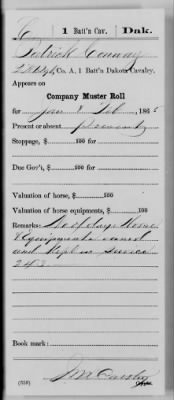 C | 1 Batt'n Cav. | Dak.
Patrick Conway
Co. A, 1 Batt'n Dakota Cavalry.
Appears on
Company Muster Roll
for Jan & Feb, 1865
Present or absent Present
Stoppage, $ 100 for
Due Gov't, $ 100 for
Valuation of horse, $ 100
Valuation of horse equipments, $ 100
Remarks: days Horse
& Equipments owned
and kept in service
Book mark:
(358)